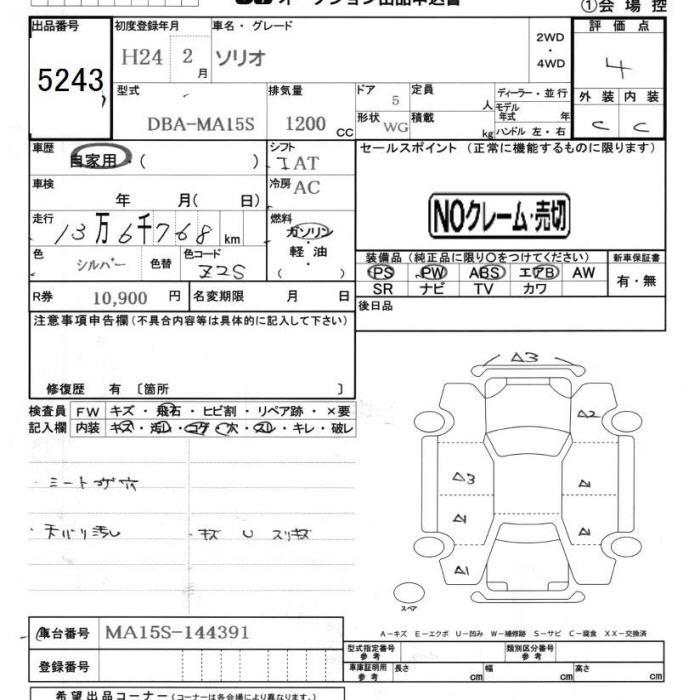 オークション出品申込書 ①会場控
出品番号 初度登録年月 車名・グレード 評価点
5243 H24 2月 ソリオ 2WD・4WD 4
型式 排気量 ドア 定員 ディーラー・並行 外装 内装
DBA-MA15S 1200 CC 5 人 モデル年式 年 C C
形状 WG 積載 kg ハンドル 左・右
車歴 シフト セールスポイント (正常に機能するものに限ります)
自家用・( ) IAT
車検 冷房 AC NOクレーム・売切
年 月( 日)
走行 燃料
13万6千768km ガソリン・軽油・( )
色 シルバー 色替 色コード Z2S
装備品 (純正品に限り○をつけてください) 新車保証書
PS PW ABS エアB AW 有・無
SR ナビ TV カワ
R券 10,900 円 名変期限 月 日 後日品
注意事項申告欄 (不具合内容等は具体的に記入して下さい)
修復歴 有 [箇所 ]
検査員 FW キズ・飛石・ヒビ割・リペア跡・×要
記入欄 内装 キズ・汚れ・コゲ・穴・スレ・キレ・破レ
・シートコゲ穴
・天バリ汚レ ・キズ U スリキズ
△3
A2
△3
A1
スペア
A-キズ E-エクボ U-凹み W-補修跡 S-サビ C-腐食 XX-交換済
車台番号 MA15S-144391
型式指定番号 参考 類別区分番号 参考
登録番号
車庫証明用 参考 長さ cm 幅 cm 高さ cm
希望出品コーナー (コーナーは各会場により異なります。)